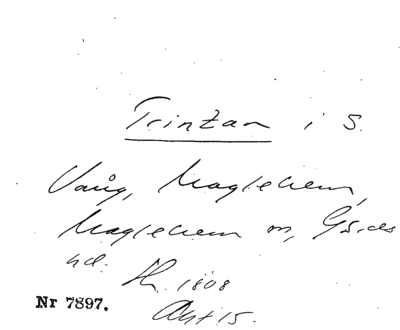 Trintan i S.
Vång, Maglehem,
Maglehem sn, Gärds
hd. 1808
Nr 7897. Akt 15.